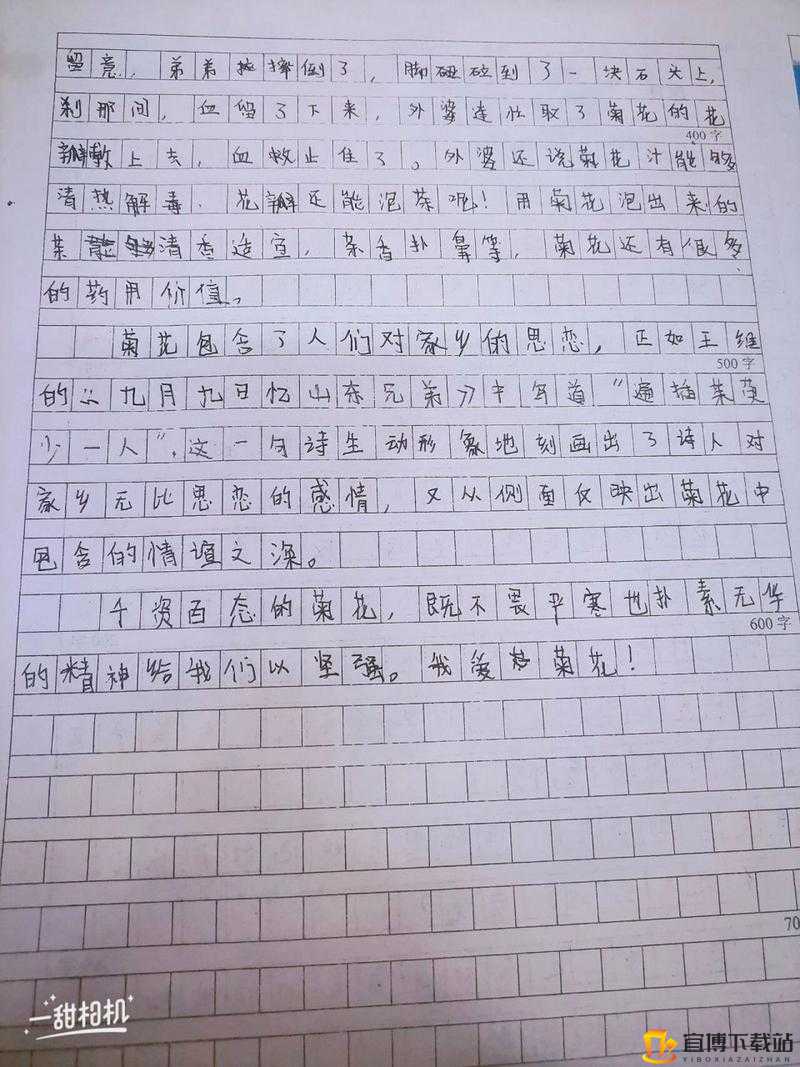 留意，弟弟摔倒了，脚碰到了一块石头上，
刹那间，血留了下来，外婆连忙取了菊花的花
400字
瓣敷上去，血救止住了。外婆还说菊花汁能够
清热解毒．花瓣还能泡茶呢！用菊花泡出来的
茶清香适宜，茶香扑鼻等，菊花还有很多
的药用价值。
菊花包含了人们对家乡的思恋，正如王维
500字
的《九月九日忆山东兄弟》中写道“遍插茱萸
少一人”．这一句诗生动形象地刻画出了诗人对
家乡无比思恋的感情，又从侧面仅映出菊花中
包含的情谊之深。
千资百态的菊花，既不畏平寒也扑素无华
600字
的精神给我们以坚强。我爱菊花！
70
一甜相机
宜博下载站
YIBOXIAZAIZHAN.COM